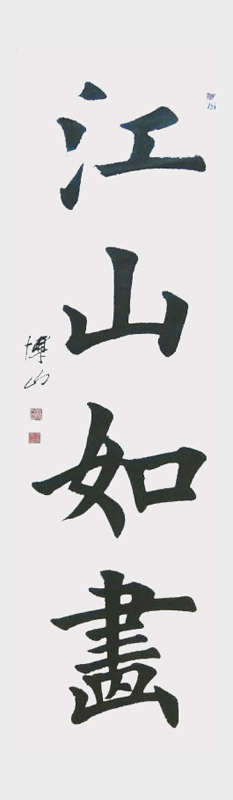 江山如畫
博山